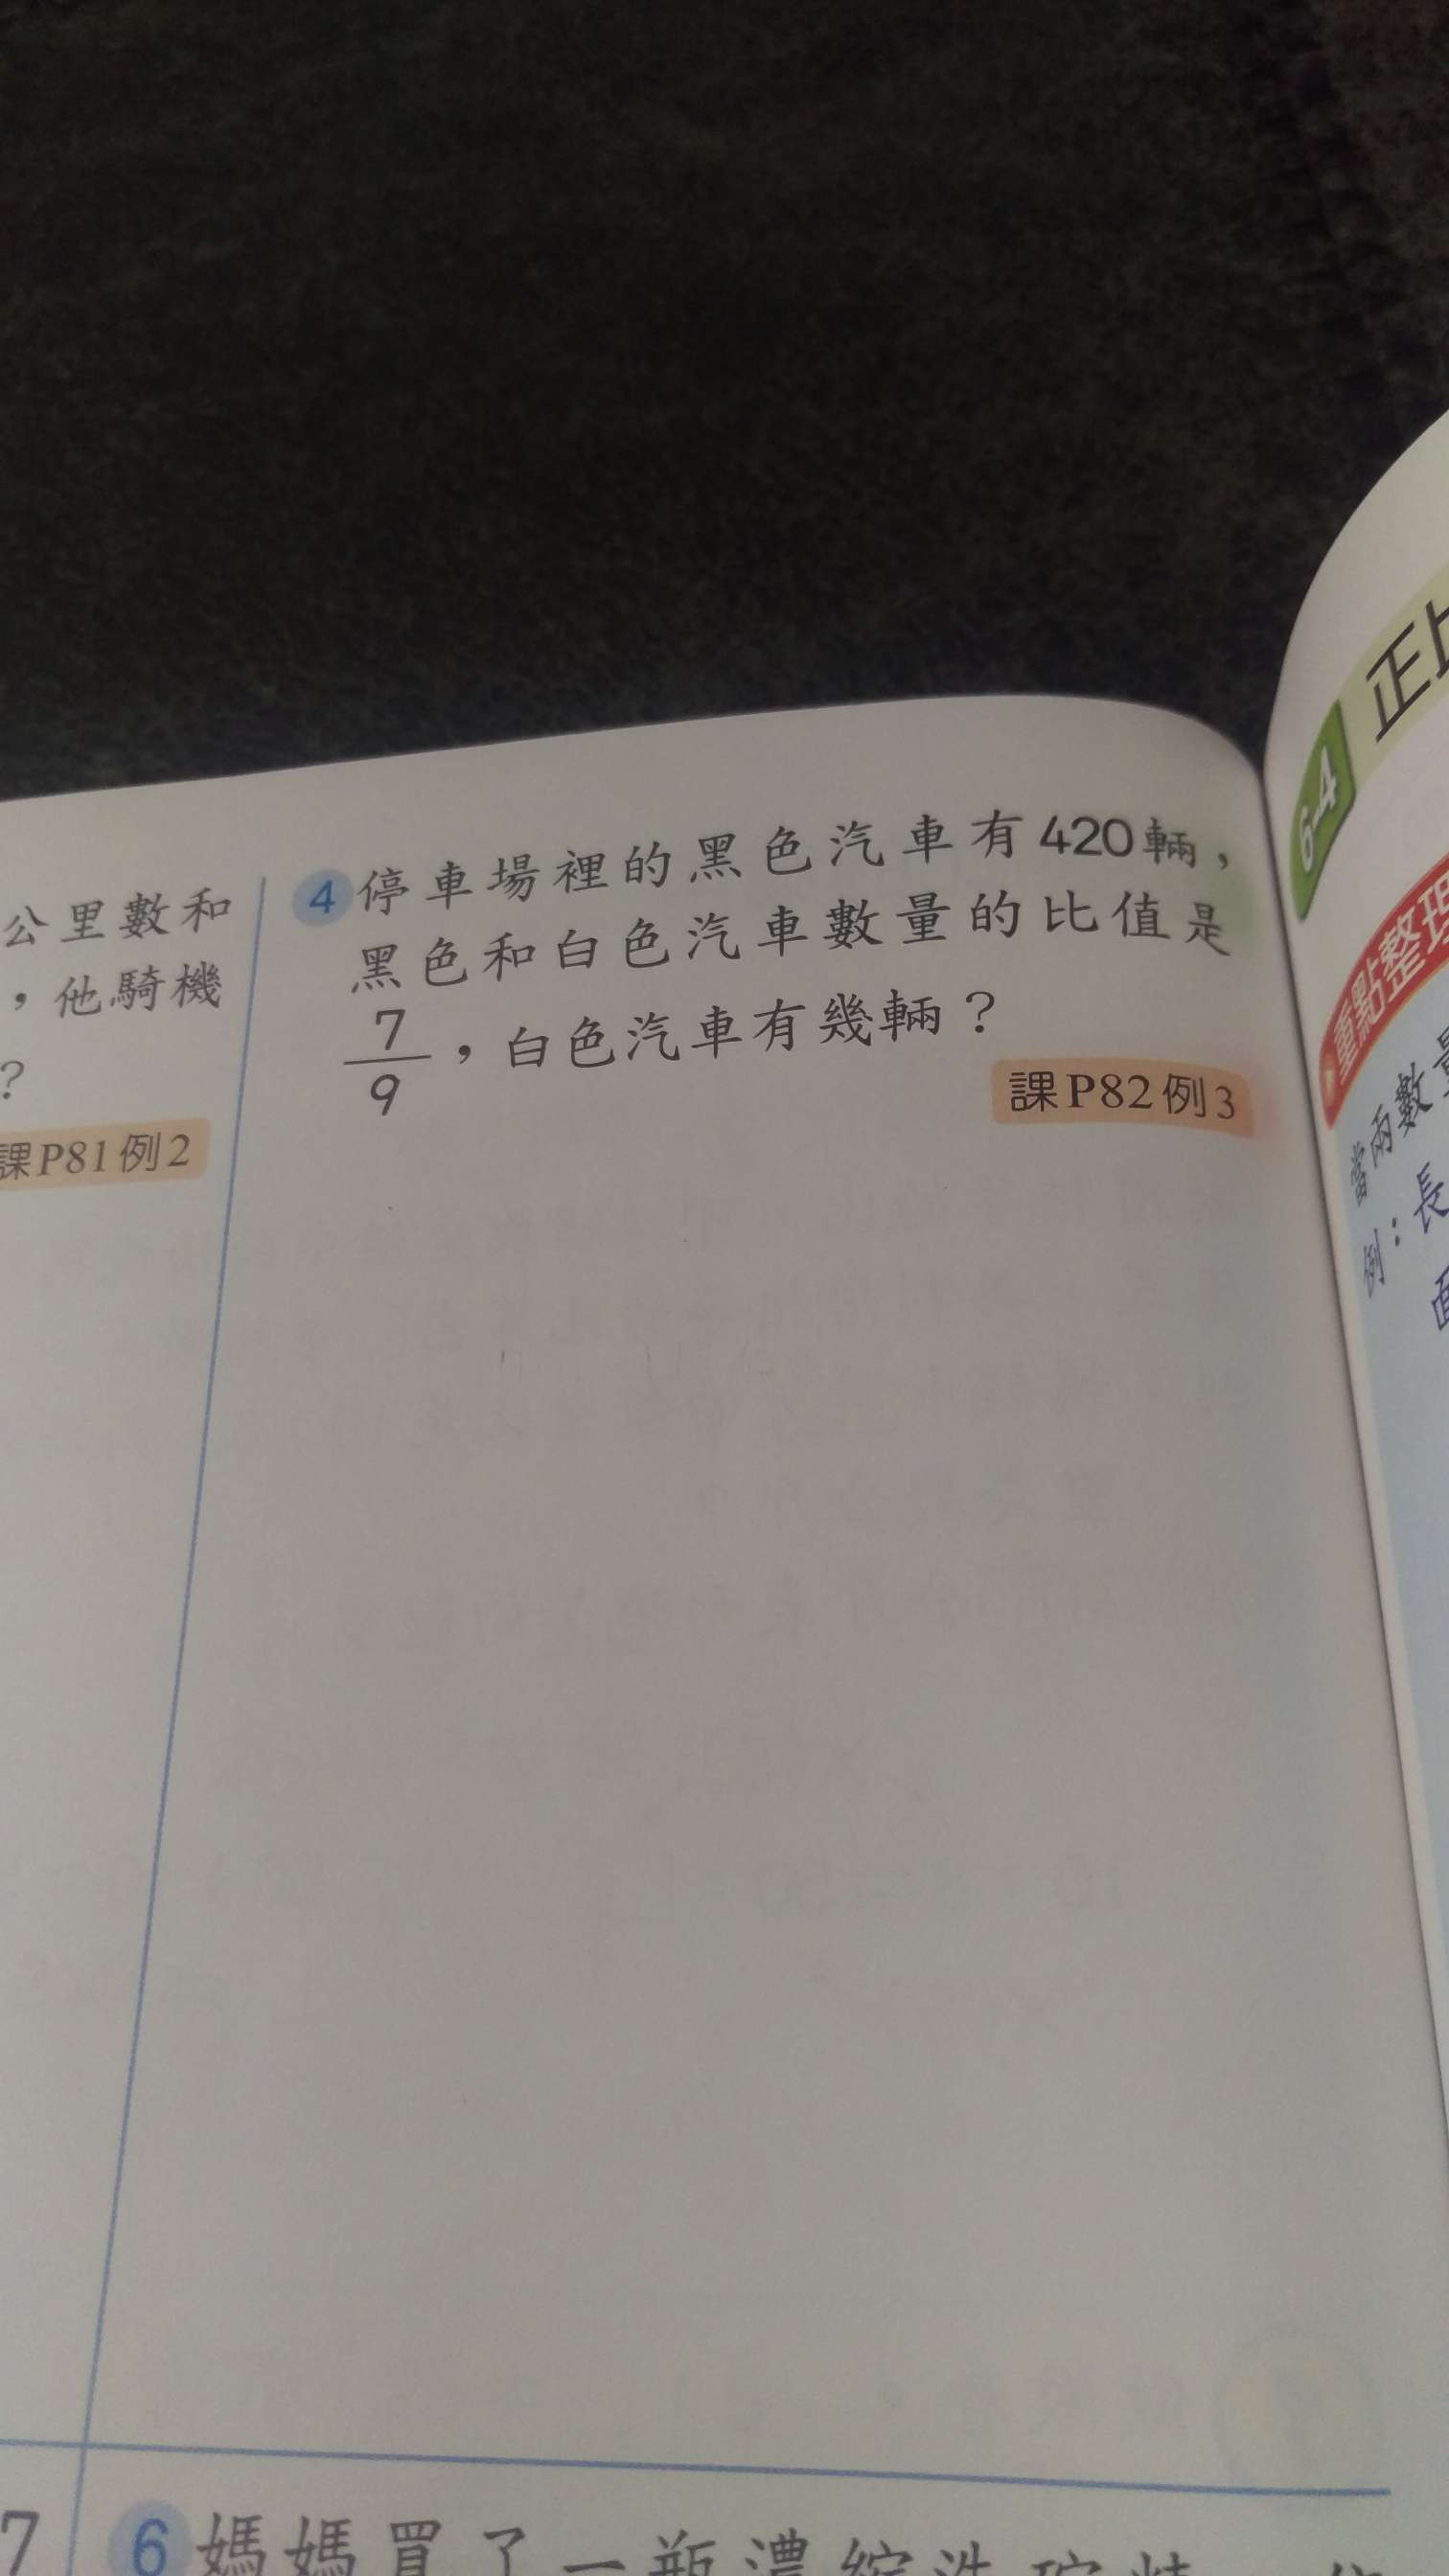 公里數和
，他騎機
？
課P81例2
4 停車場裡的黑色汽車有420輛，
黑色和白色汽車數量的比值是
7/9，白色汽車有幾輛？
課P82例3
7
6 媽媽買了一瓶濃縮洗碗精
6-4 正比
重點整理
當兩數量
例：長
面